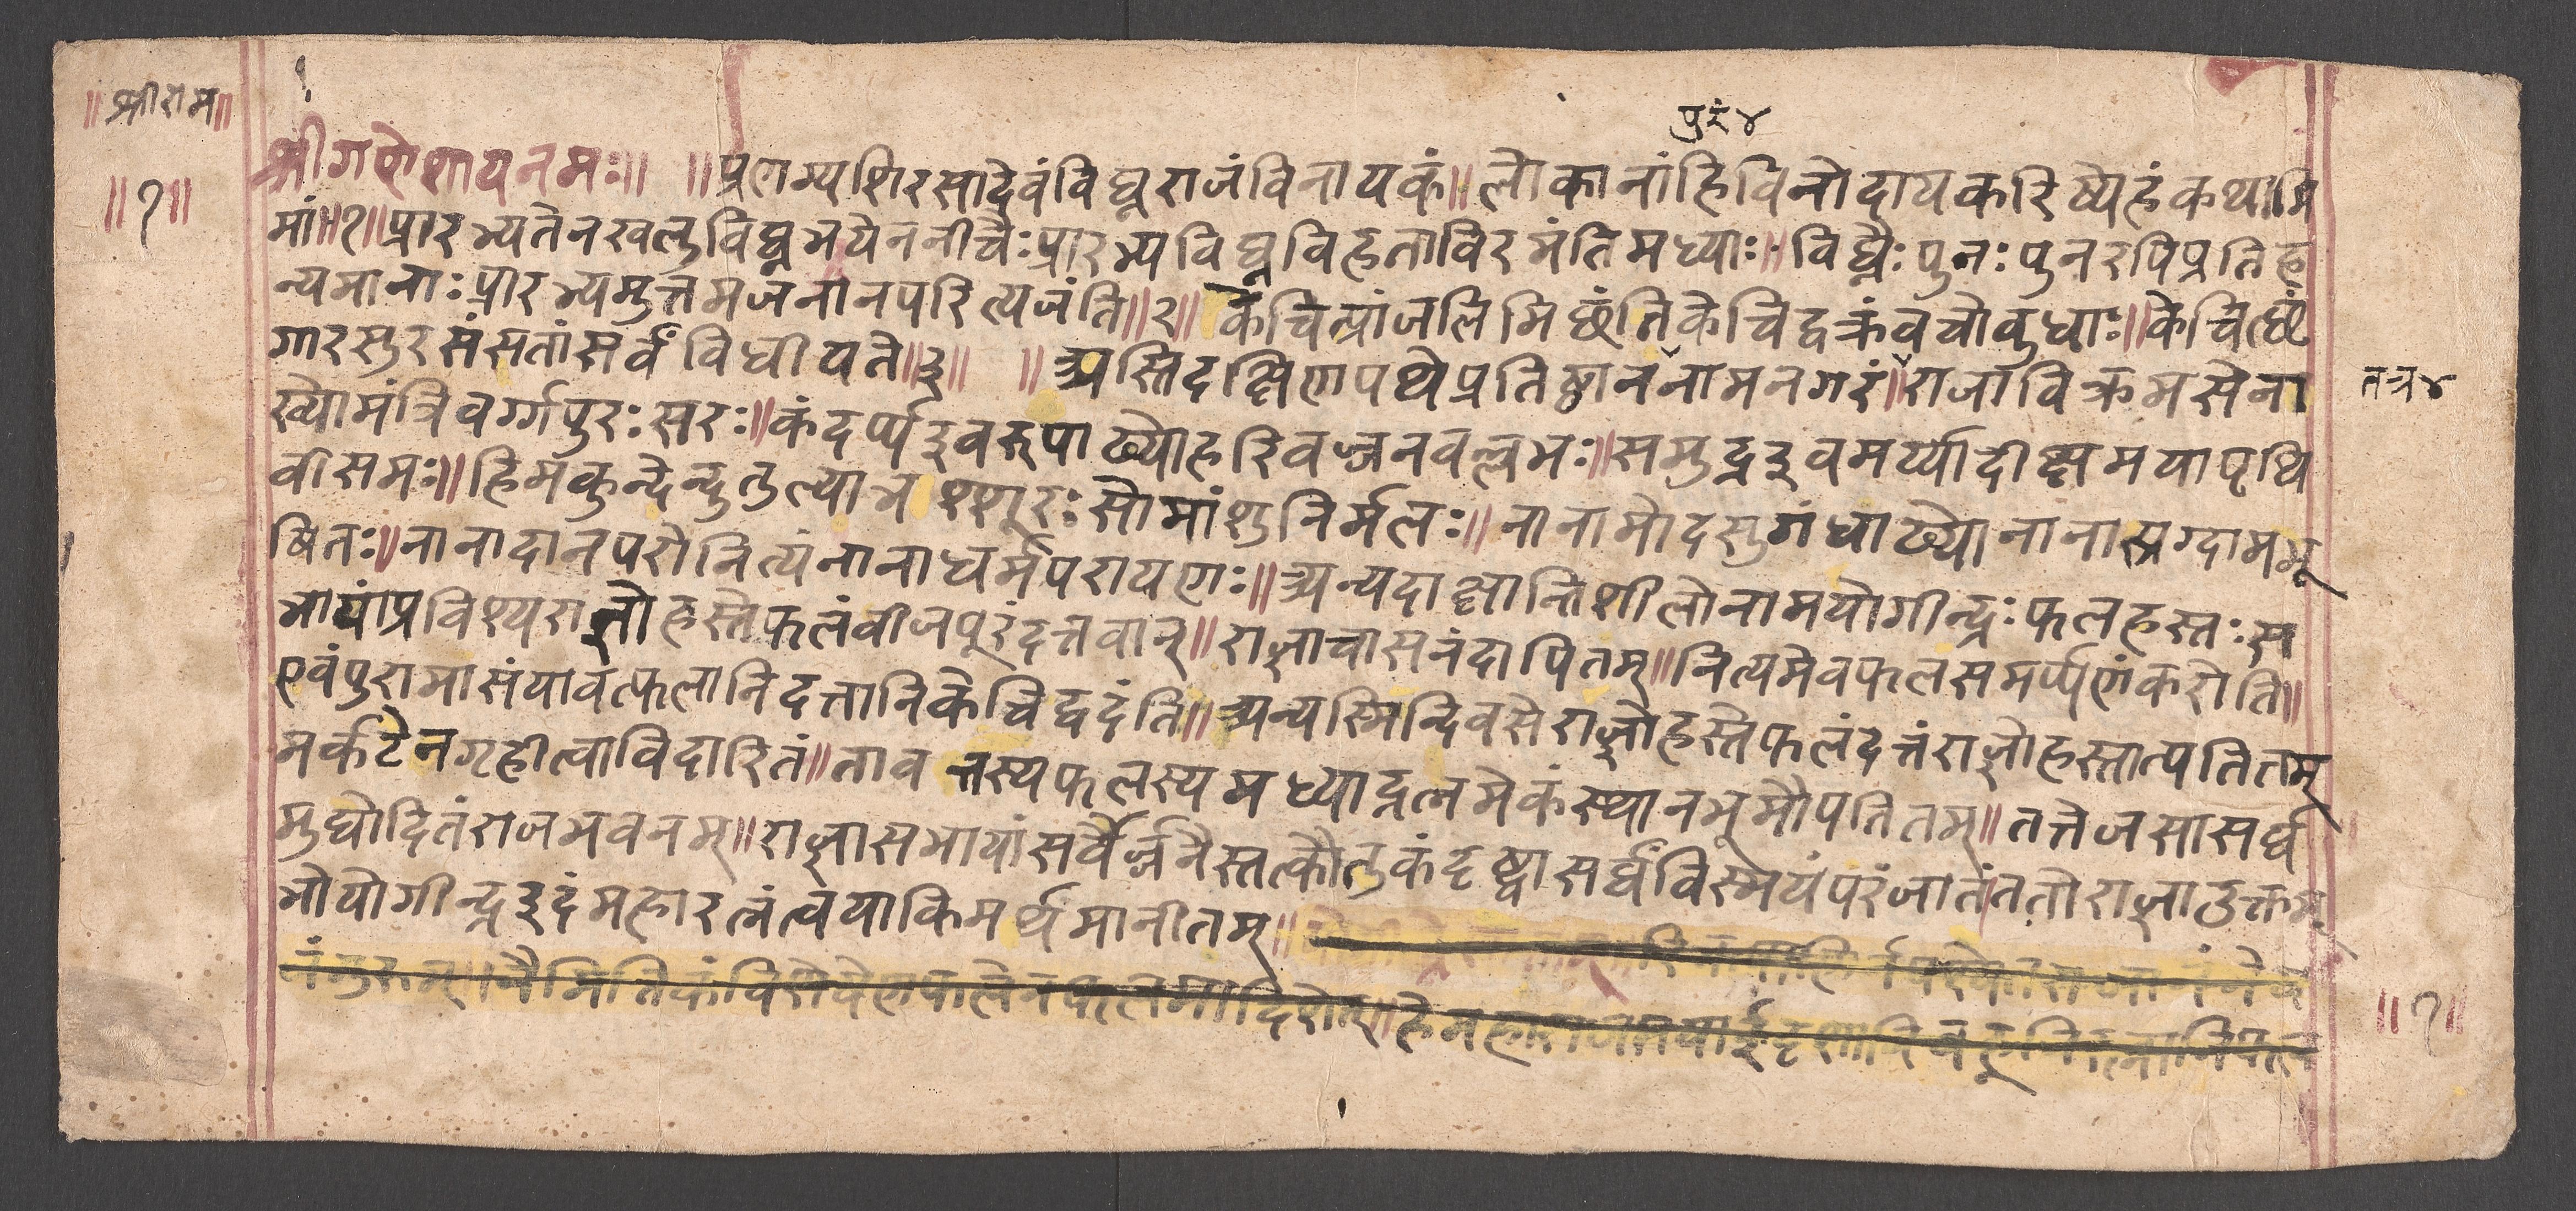 ॥श्रीराम॥
॥१॥
१
पुरं४
श्रीगणेशायनमः॥ ॥प्रणम्यशिरसादेवंविघ्नराजंविनायकं॥लोकानांहिविनोदायकरिष्येहंकथामि
मां॥१॥प्रारभ्यतेनखलुविघ्नभयेननीचैःप्रारभ्यविघ्नविहताविरमंतिमध्याः॥विघ्नैःपुनःपुनरपिप्रतिह
न्यमानाःप्रारभ्यमुत्तमजनानपरित्यजंति॥२॥केचित्प्रांजलिमिछंतिकेचिद्वक्रंवचोबुधाः॥केचित्छृं
गारसुरसंसतांसर्वंविधीयते॥३॥ ॥अस्तिदक्षिणपथेप्रतिष्ठानंनामनगरं॥राजाविक्रमसेना
तत्र४
ख्योमंत्रिवर्ग्गपुरःसरः॥कंदर्प्पइवरूपाढ्योहरिवज्जनवल्लभः॥समुद्रइवमर्य्यादीक्षमयापृथि
वीसमः॥हिमकुन्देन्दुतुल्याभश्शूरःसोमांशुनिर्मलः॥नानामोदसुगंधाढ्योनानास्रग्दामभू
षितः॥नानादानपरोनित्यंनानाधर्मपरायणः॥अन्यदाक्षान्तिशीलोनामयोगीन्द्रःफलहस्तःस
भायांप्रविश्यराज्ञोहस्तेफलंबीजपूरंदत्तवान्॥राज्ञाचासनंदापितम्॥नित्यमेवफलसमर्प्पणंकरोति॥
एवंपुरामासंयावत्फलानिदत्तानिकेचिद्वदंति॥अन्यस्मिन्दिवसेराज्ञोहस्तेफलंदत्तंराज्ञोहस्तात्पतितम्
मर्कटेनगृहीत्वाविदारितं॥तावत्तस्यफलस्यमध्याद्रत्नमेकंस्थानभूमौपतितम्॥तत्तेजसासर्व्व
मुद्योदितंराजभवनम्॥राज्ञासभायांसर्वैर्ज्जनैस्तत्कौतुकंदृष्ट्वासर्व्वंविस्मयंपरंजातंततोराज्ञाउक्तम्
भोयोगीन्द्रइदंमहारत्नंत्वयाकिमर्थमानीतम्॥
नैमित्तिकंविशेषेणफलेनफलमादिशेत्॥हेमहाराजमयाईदृशानिबहूनिरत्नानिफल
॥१॥